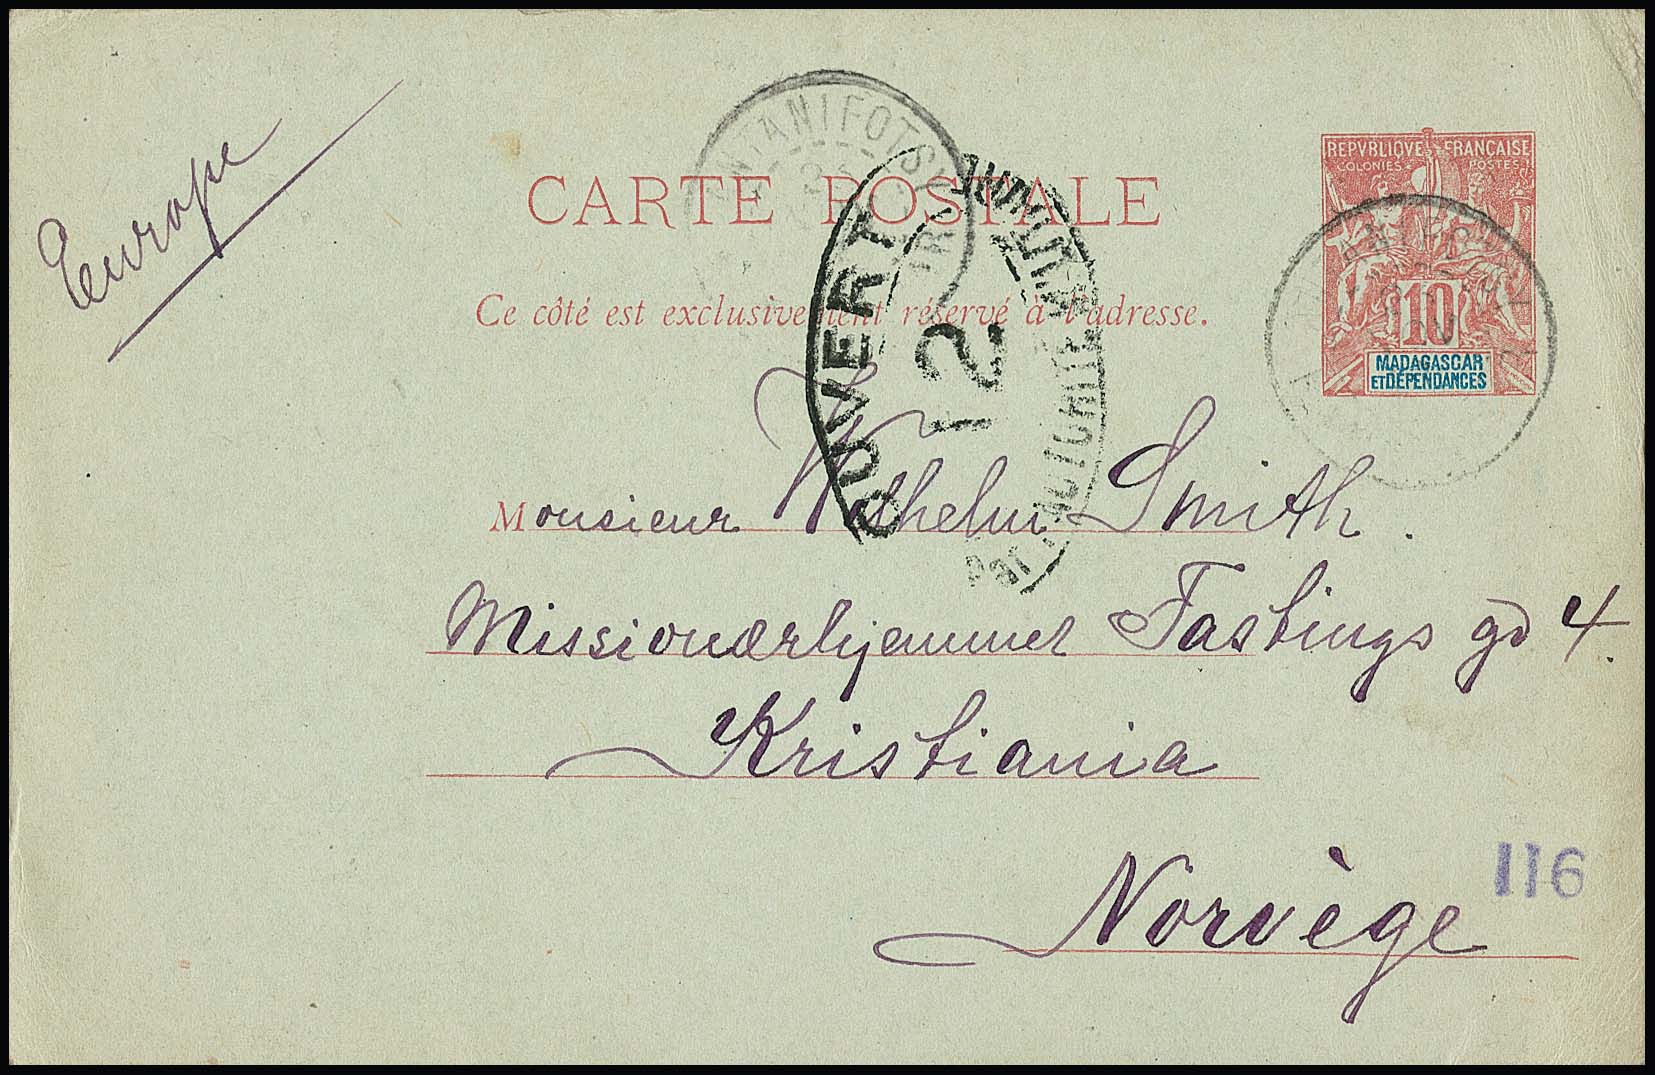 Europe
ANTANIFOTSY
REPVBLIQVE FRANÇAISE
COLONIES POSTES
CARTE POSTALE
10
MADAGASCAR
ET DÉPENDANCES
Ce côté est exclusivement réservé à l'adresse.
OUVERT
PAR L'AUTORITÉ MILITAIRE
12
Monsieur Wilhelm Smith.
Missionærhjemmet Fastings gd 4.
Kristiania
116
Norvège